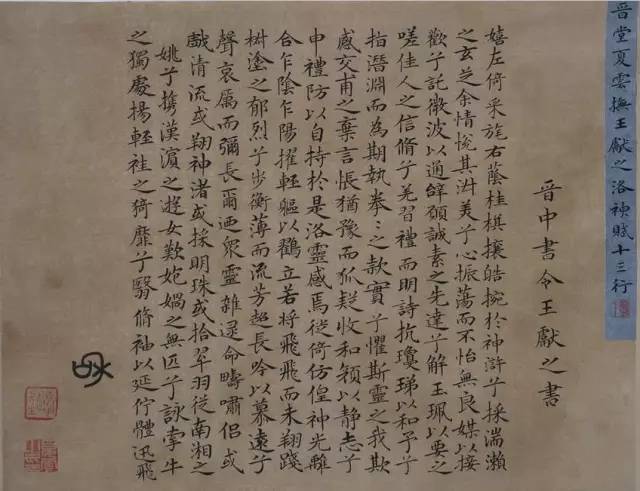 晋堂夏雲撫王獻之洛神賦十三行
晋中書令王獻之書
嬉左倚采旄右蔭桂棋攘皓捥於神滸兮採湍瀨
之玄芝余情悅其淑美兮心振蕩而不怡無良媒以接
歡兮託微波以通辭願誠素之先達兮解玉珮以要之
嗟佳人之信脩兮羌習禮而明詩抗瓊珶以和予兮
指潛淵而為期執拳〻之款實兮懼斯靈之我欺
感交甫之棄言悵猶豫而狐疑收和顏以静志兮
申禮防以自持於是洛靈感焉徙倚仿偟神光離
合乍陰乍陽擢輕軀以鶴立若將飛飛而未翔踐
椒塗之郁烈兮步衡薄而流芳超長吟以慕遠兮
聲哀厲而彌長爾迺衆靈雜遝命疇嘯侶或
戲清流或翔神渚或採明珠或拾翠羽從南湘之
姚兮攜漢濱之遊女歎匏媧之無匹兮詠牽牛
之獨處揚輕袿之猗靡兮翳脩袖以延佇體迅飛